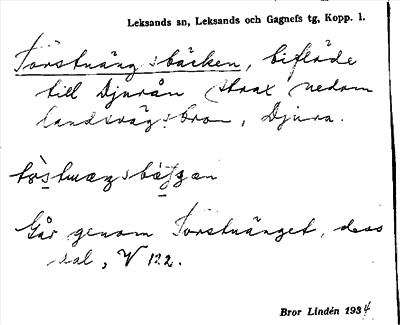 Leksands sn, Leksands och Gagnefs tg, Kopp. l.
Törstnängsbäcken, biflöde
till Djurån strax nedom
landsvägsbron, Djura.
Går genom Törstnänget, dess
, V 122.
Bror Lindén 1934